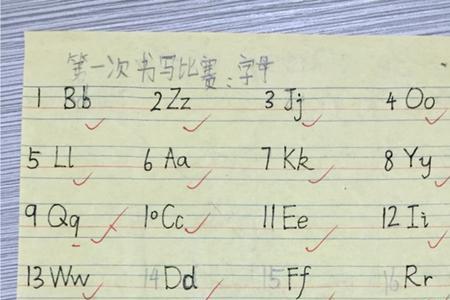 第一次书写比赛:字母
1 Bb 2 Zz 3 Jj 4 Oo
5 Ll 6 Aa 7 Kk 8 Yy
9 Qq 10 Cc 11 Ee 12 Ii
13 Ww 14 Dd 15 Ff 16 Rr